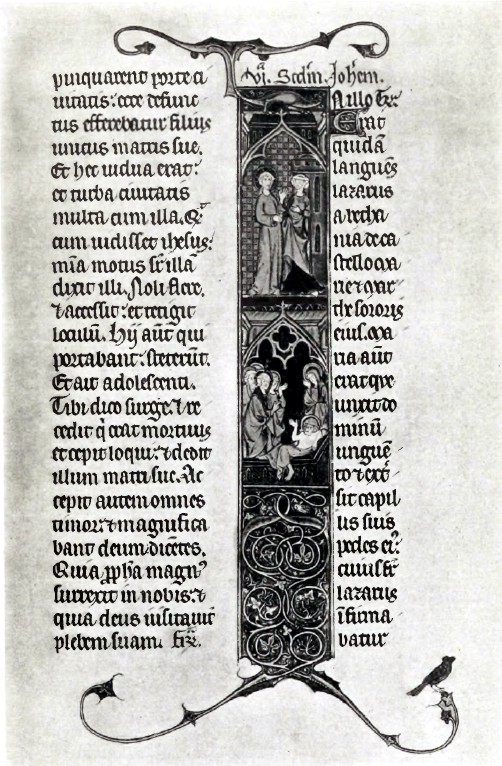 pinquarent porte ci
uitatis: ecce defunc
tus efferebatur filius
unicus matris sue.
Et hec uidua erat:
et turba ciuitatis
multa cum illa. Qᵃ
cum uidisset ihesus:
mīa motus sr̄ illā
dixit illi. Noli flere.
⁊ accessit: et tetigit
loculū. Hij aūt qui
portabant: steterūt.
Et ait adolescenti.
Tibi dico surge. ⁊ re
sedit q̇ erat mortuus
et cepit loqui: ⁊ dedit
illum matri sue. Ac
cepit autem omnes
timor: ⁊ magnifica
bant deum dicētes.
Quia ꝓpħa magnꝰ
surrexit in nobis: ⁊
quia deus uisitauit
plebem suam.
vjᵃ. Scdm̄. Joħem.
N illo
Erat
quidā
languēs
lazarus
a betha
nia de ca
stello ma
rie ⁊ mar
the sororis
eius. Ma
ria aūt
erat que
unxit do
minū
unguē
to ⁊ exˢt
sit capil
lis suis
pedes eiꝰ:
cuius fr̄
lazarus
īfirma
batur